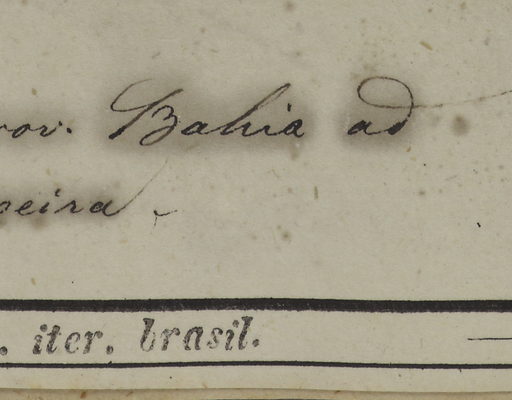 rov. Bahia ad
oeira.
. iter. brasil.